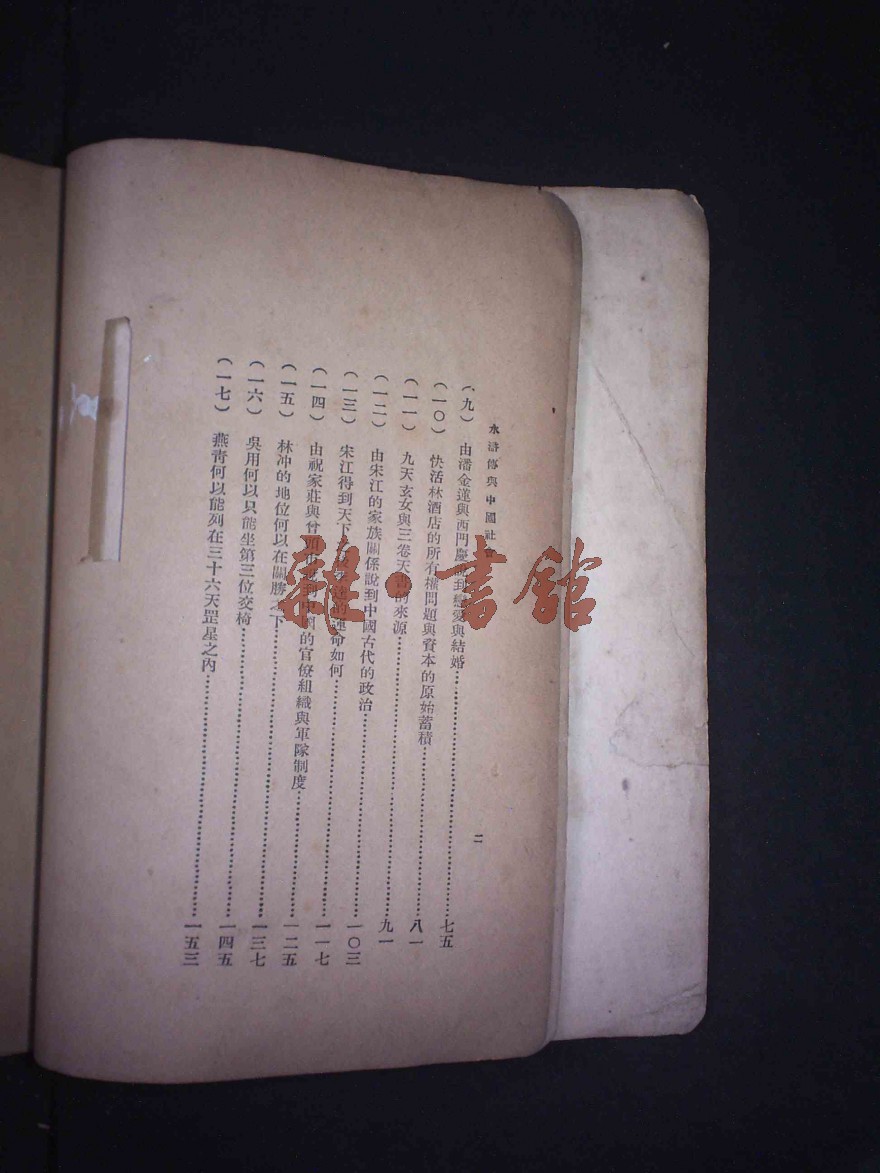 水滸傳與中國社
二
(九) 由潘金蓮與西門慶說到戀愛與結婚……七五
(一〇) 快活林酒店的所有權問題與資本的原始蓄積……八一
(一一) 九天玄女與三卷天書的來源……九一
(一二) 由宋江的家族關係說到中國古代的政治……一〇三
(一三) 宋江得到天下的運命如何……一一七
(一四) 由祝家莊與曾頭的官僚組織與軍隊制度……一二五
(一五) 林冲的地位何以在關勝之下……一三七
(一六) 吳用何以只能坐第三位交椅……一四五
(一七) 燕青何以能列在三十六天罡星之內……一五三
雜·書館